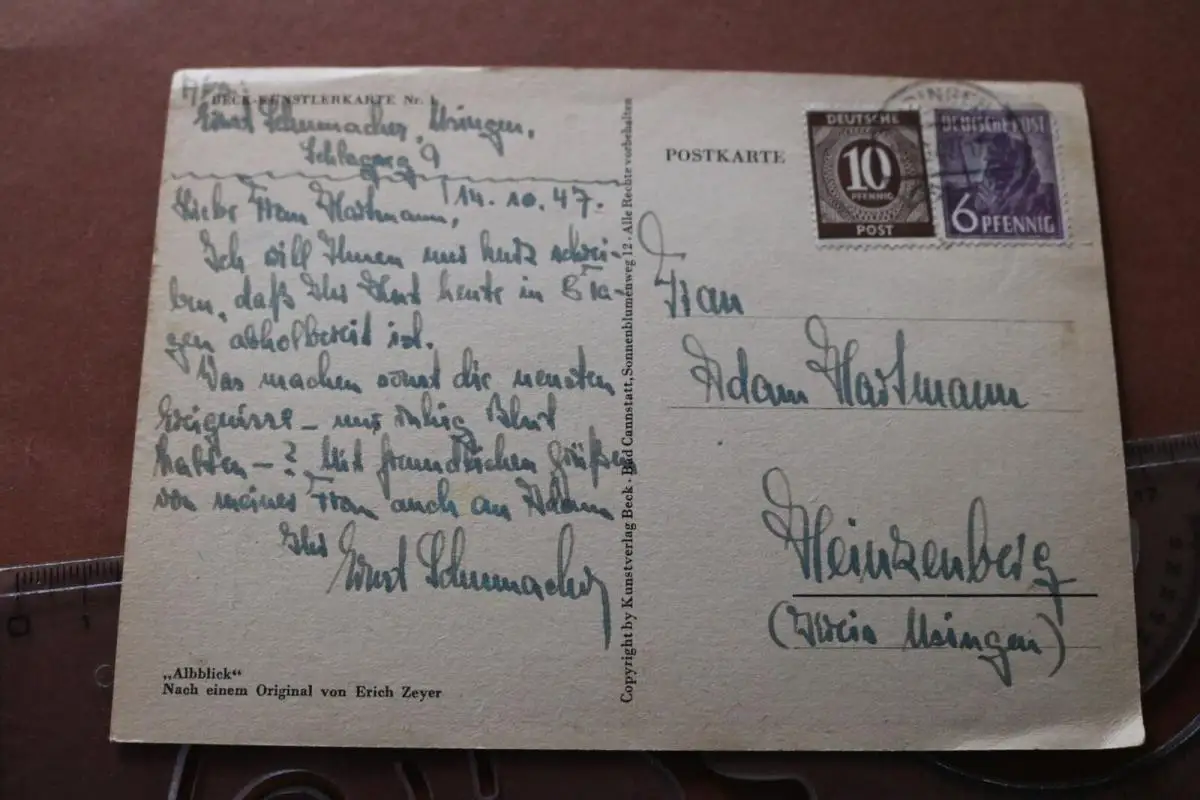 BECK-KÜNSTLERKARTE Nr.
Ernst Schumacher, Usingen,
Schlagweg 9
Liebe Frau Hartmann, 14. 10. 47.
Ich will Ihnen nur kurz schrei-
ben, daß Ihr Hut heute in
gen abholbereit ist.
Was machen sonst die neusten
Ereignisse – nur ruhig Blut
halten – ? Mit freundlichen Grüßen
von meiner Frau auch an Adam
Ihr
Ernst Schumacher
„Albblick“
Nach einem Original von Erich Zeyer
Copyright by Kunstverlag Beck · Bad Cannstatt, Sonnenblumenweg 12 · Alle Rechte vorbehalten
POSTKARTE
DEUTSCHE
10
PFENNIG
POST
DEUTSCHE POST
6 PFENNIG
Frau
Adam Hartmann
Heinzenberg
(Kreis Usingen)